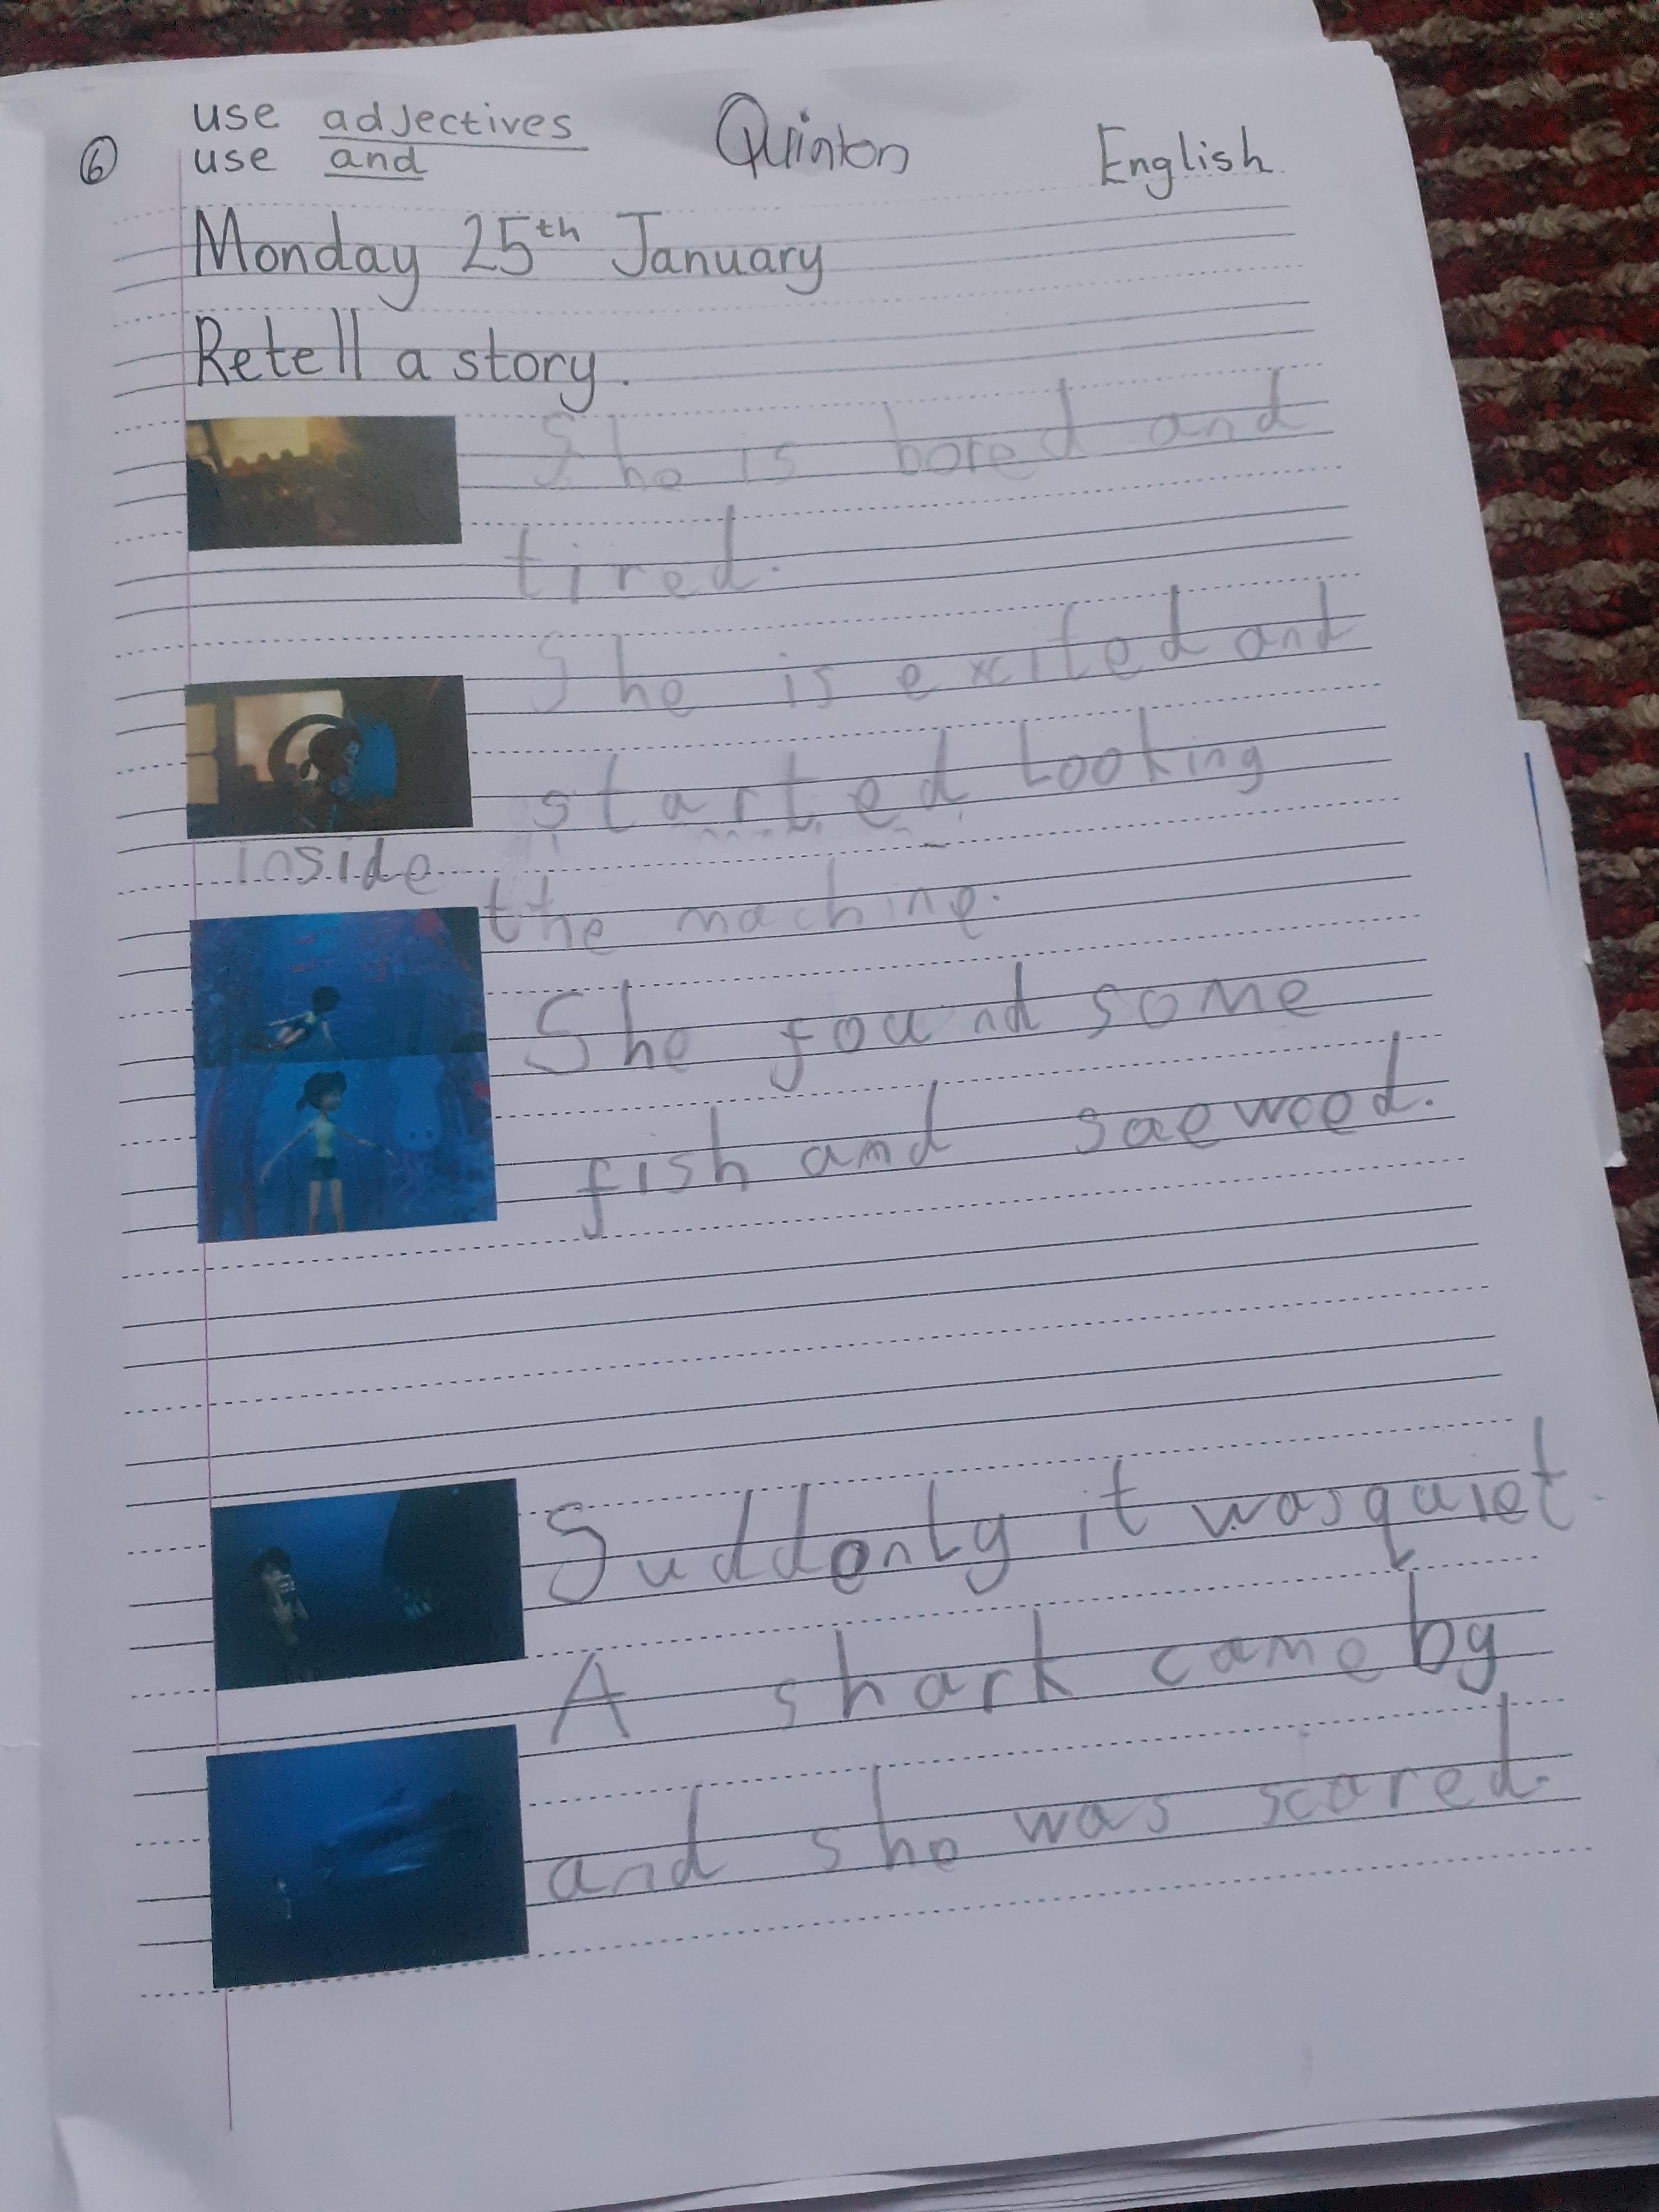 use adjectives
⑥ use and
Quinton
English
Monday 25th January
Retell a story.
She is bored and
tired.
She is excited and
started Looking
inside
the machine.
She found some
fish and saeweed.
Suddenly it was quiet.
A shark came by
and she was scared.